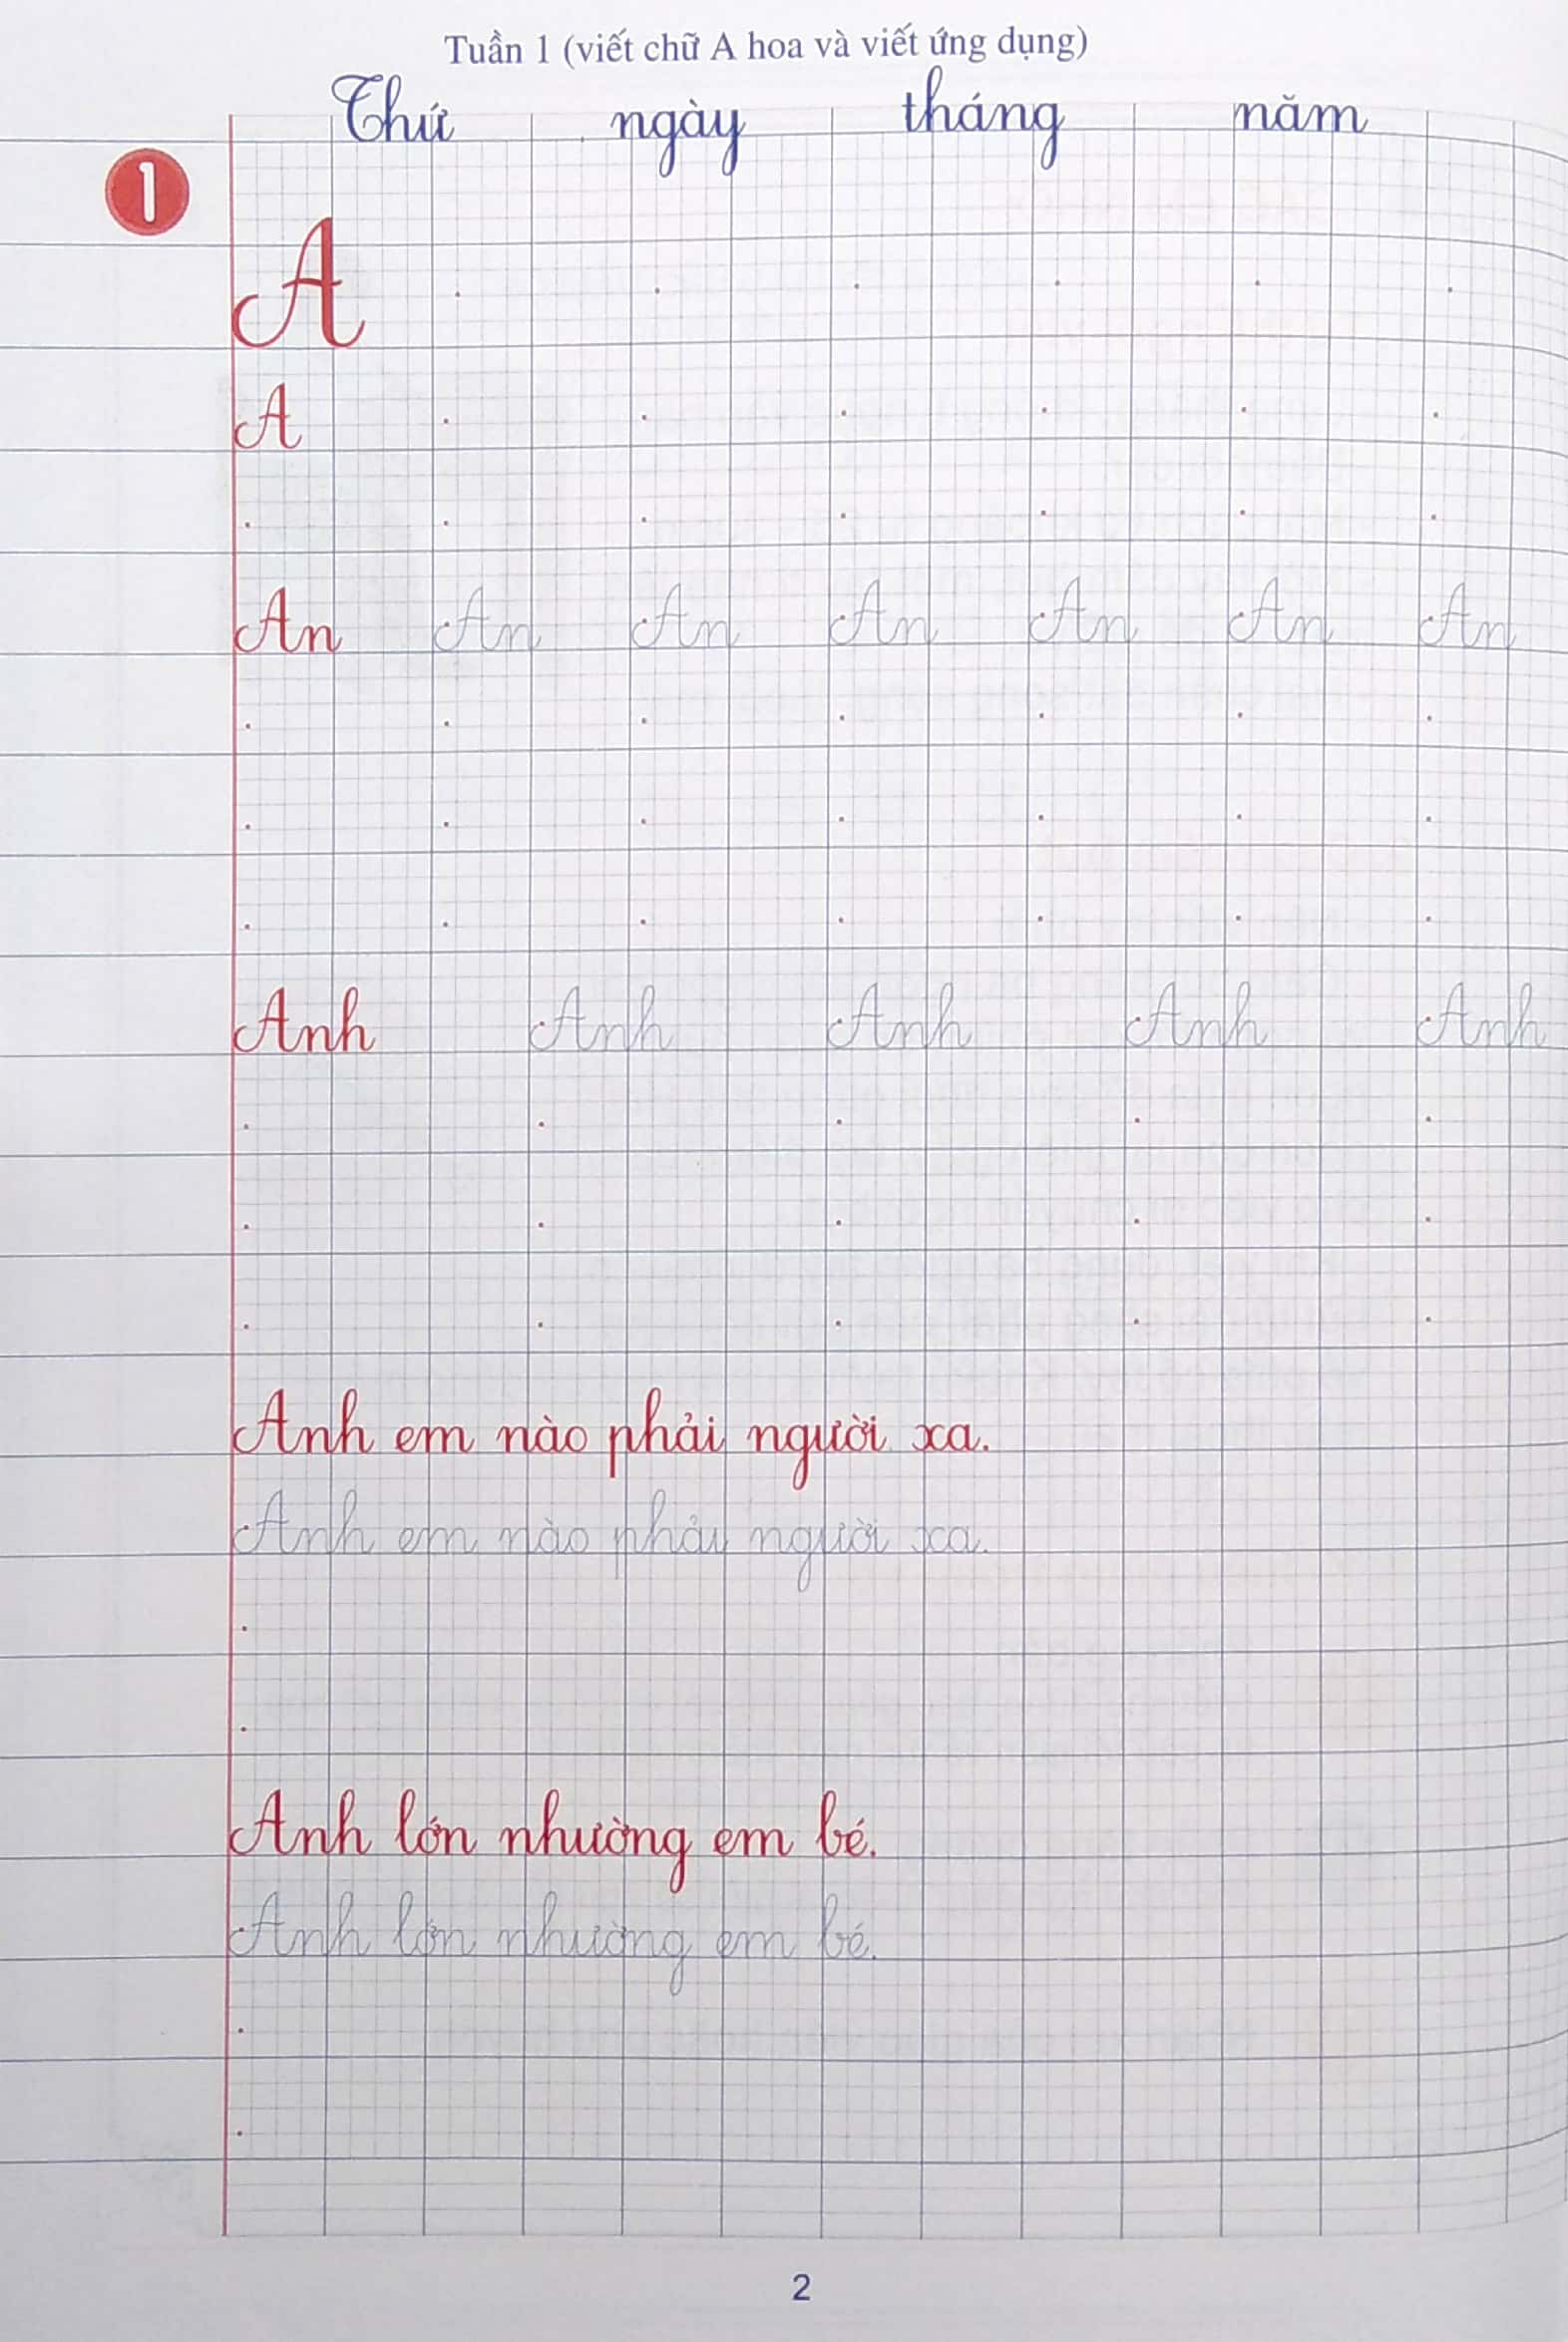 Tuần 1 (viết chữ A hoa và viết ứng dụng)
Thứ ngày tháng năm
1
A
A
An An An An An An An
Anh Anh Anh Anh Anh
Anh em nào phải người xa.
Anh em nào phải người xa.
Anh lớn nhường em bé.
Anh lớn nhường em bé.
2